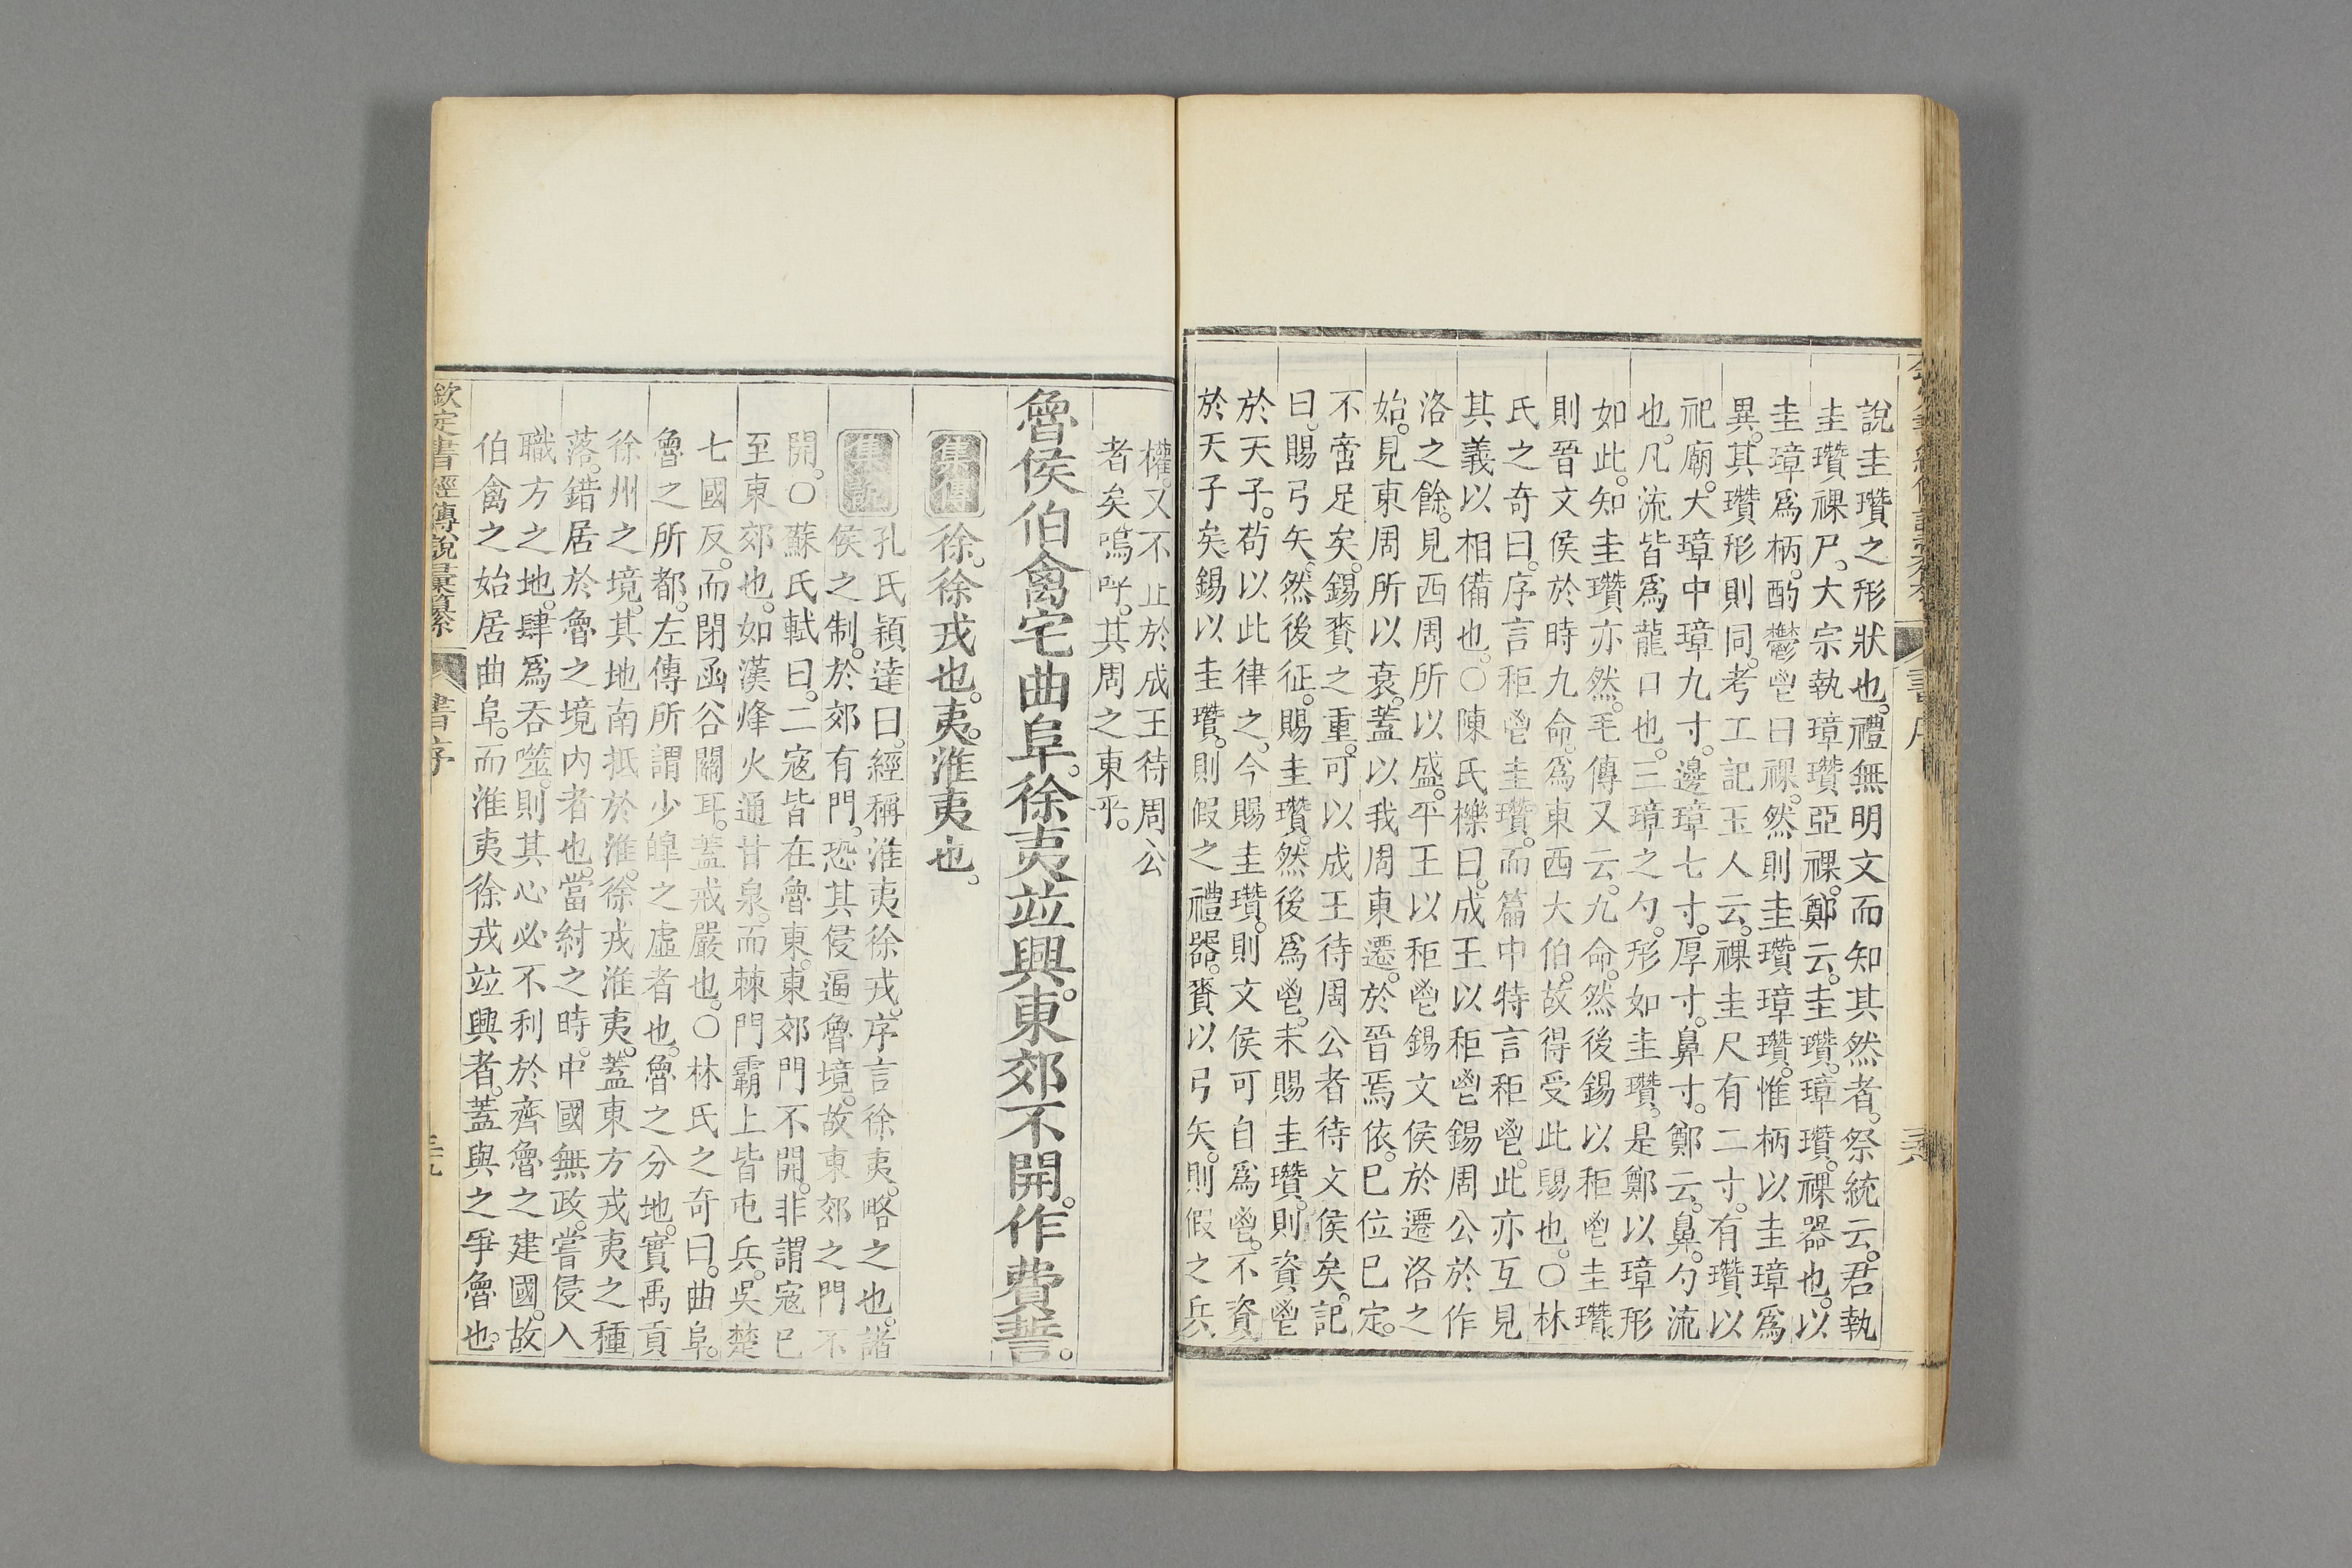 說圭瓚之形狀也。禮無明文而知其然者。祭統云。君執
圭瓚祼尸。大宗執璋瓚亞祼。鄭云。圭瓚。璋瓚。祼器也。以
圭璋爲柄。酌鬱鬯曰祼。然則圭瓚璋瓚。惟柄以圭璋爲
異。其瓚形則同。考工記玉人云。祼圭尺有二寸。有瓚以
祀廟。大璋中璋九寸。邊璋七寸。厚寸。鼻寸。鄭云。鼻。勺流
也。凡流皆爲龍口也。三璋之勺。形如圭瓚。是鄭以璋形
如此。知圭瓚亦然。毛傳又云。九命。然後錫以秬鬯圭瓚。
則晉文侯於時九命。爲東西大伯。故得受此賜也。〇林
氏之奇曰。序言秬鬯圭瓚。而篇中特言秬鬯。此亦互見
其義以相備也。〇陳氏櫟曰。成王以秬鬯錫周公於作
洛之餘。見西周所以盛。平王以秬鬯錫文侯於遷洛之
始。見東周所以衰。蓋以我周東遷。於晉焉依。巳位巳定。
不啻足矣。錫賚之重。可以成王待周公者待文侯矣。記
曰。賜弓矢。然後征。賜圭瓚。然後爲鬯。未賜圭瓚。則資鬯
於天子。苟以此律之。今賜圭瓚。則文侯可自爲鬯。不資
於天子矣。錫以圭瓚。則假之禮器。賚以弓矢。則假之兵
權。又不止於成王待周公
者矣。嗚呼。其周之東乎。
魯侯伯禽宅曲阜。徐夷竝興。東郊不開。作費誓。
集傳 徐。徐戎也。夷。淮夷也。
集說 孔氏穎達曰。經稱淮夷徐戎。序言徐夷。略之也。諸
侯之制。於郊有門。恐其侵逼魯境。故東郊之門不
開。〇蘇氏軾曰。二寇皆在魯東。東郊門不開。非謂寇巳
至東郊也。如漢烽火通甘泉。而棘門霸上皆屯兵。吳楚
七國反。而閉函谷關耳。蓋戒嚴也。〇林氏之奇曰。曲阜。
魯之所都。左傳所謂少皞之虛者也。魯之分地。實禹貢
徐州之境。其地南抵於淮。徐戎淮夷。蓋東方戎夷之種
落。錯居於魯之境內者也。當紂之時。中國無政。嘗侵入
職方之地。肆爲吞噬。則其心必不利於齊魯之建國。故
伯禽之始居曲阜。而淮夷徐戎竝興者。蓋與之爭魯也。
欽定書經傳說彙纂 書序